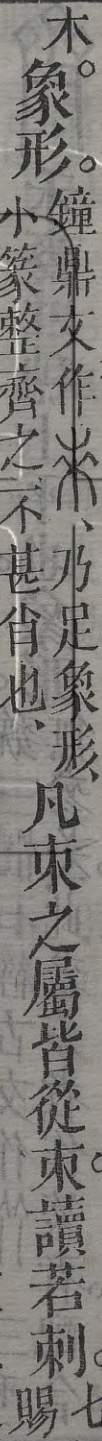 木。象形。鐘鼎文作、乃足象形、小篆整齊之、不甚肖也、凡朿之屬皆從朿。讀若刺。七賜